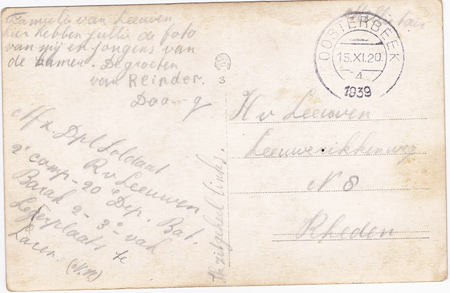 Familie van Leeuwen
hier hebben jullie de foto
van mij en jongens van
de kamer. De groeten
van Reinder.
Daa-g
Afz. Dpl. Soldaat
R. v. Leeuwen
2e comp - 20e Dep. Bat.
Barak 2 - 3e vak
Legerplaats te
Laren. (N.H.)
Ik zit geheel links.
3
OOSTERBEEK
15.XI.20
4
1939
H v Leeuwen
Leeuwerikkenweg
No 8
Rheden